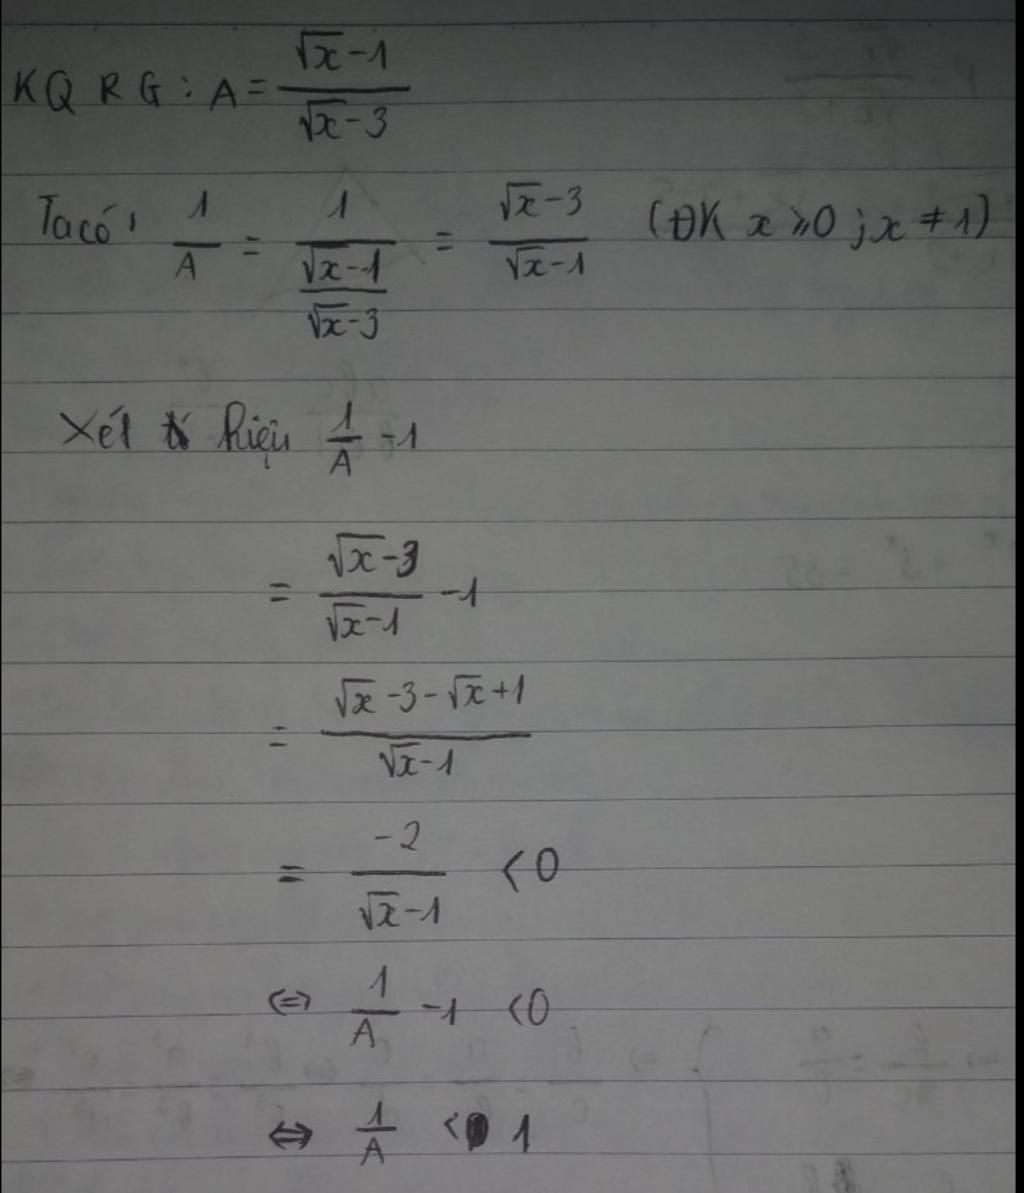 KQ RG : A = (√x - 1)/(√x - 3)
Ta có: 1/A = 1/((√x - 1)/(√x - 3)) = (√x - 3)/(√x - 1) (ĐK x ⩾ 0 ; x ≠ 1)
Xét hiệu 1/A - 1
= (√x - 3)/(√x - 1) - 1
= (√x - 3 - √x + 1)/(√x - 1)
= -2/(√x - 1) < 0
⇔ 1/A - 1 < 0
⇔ 1/A < 1